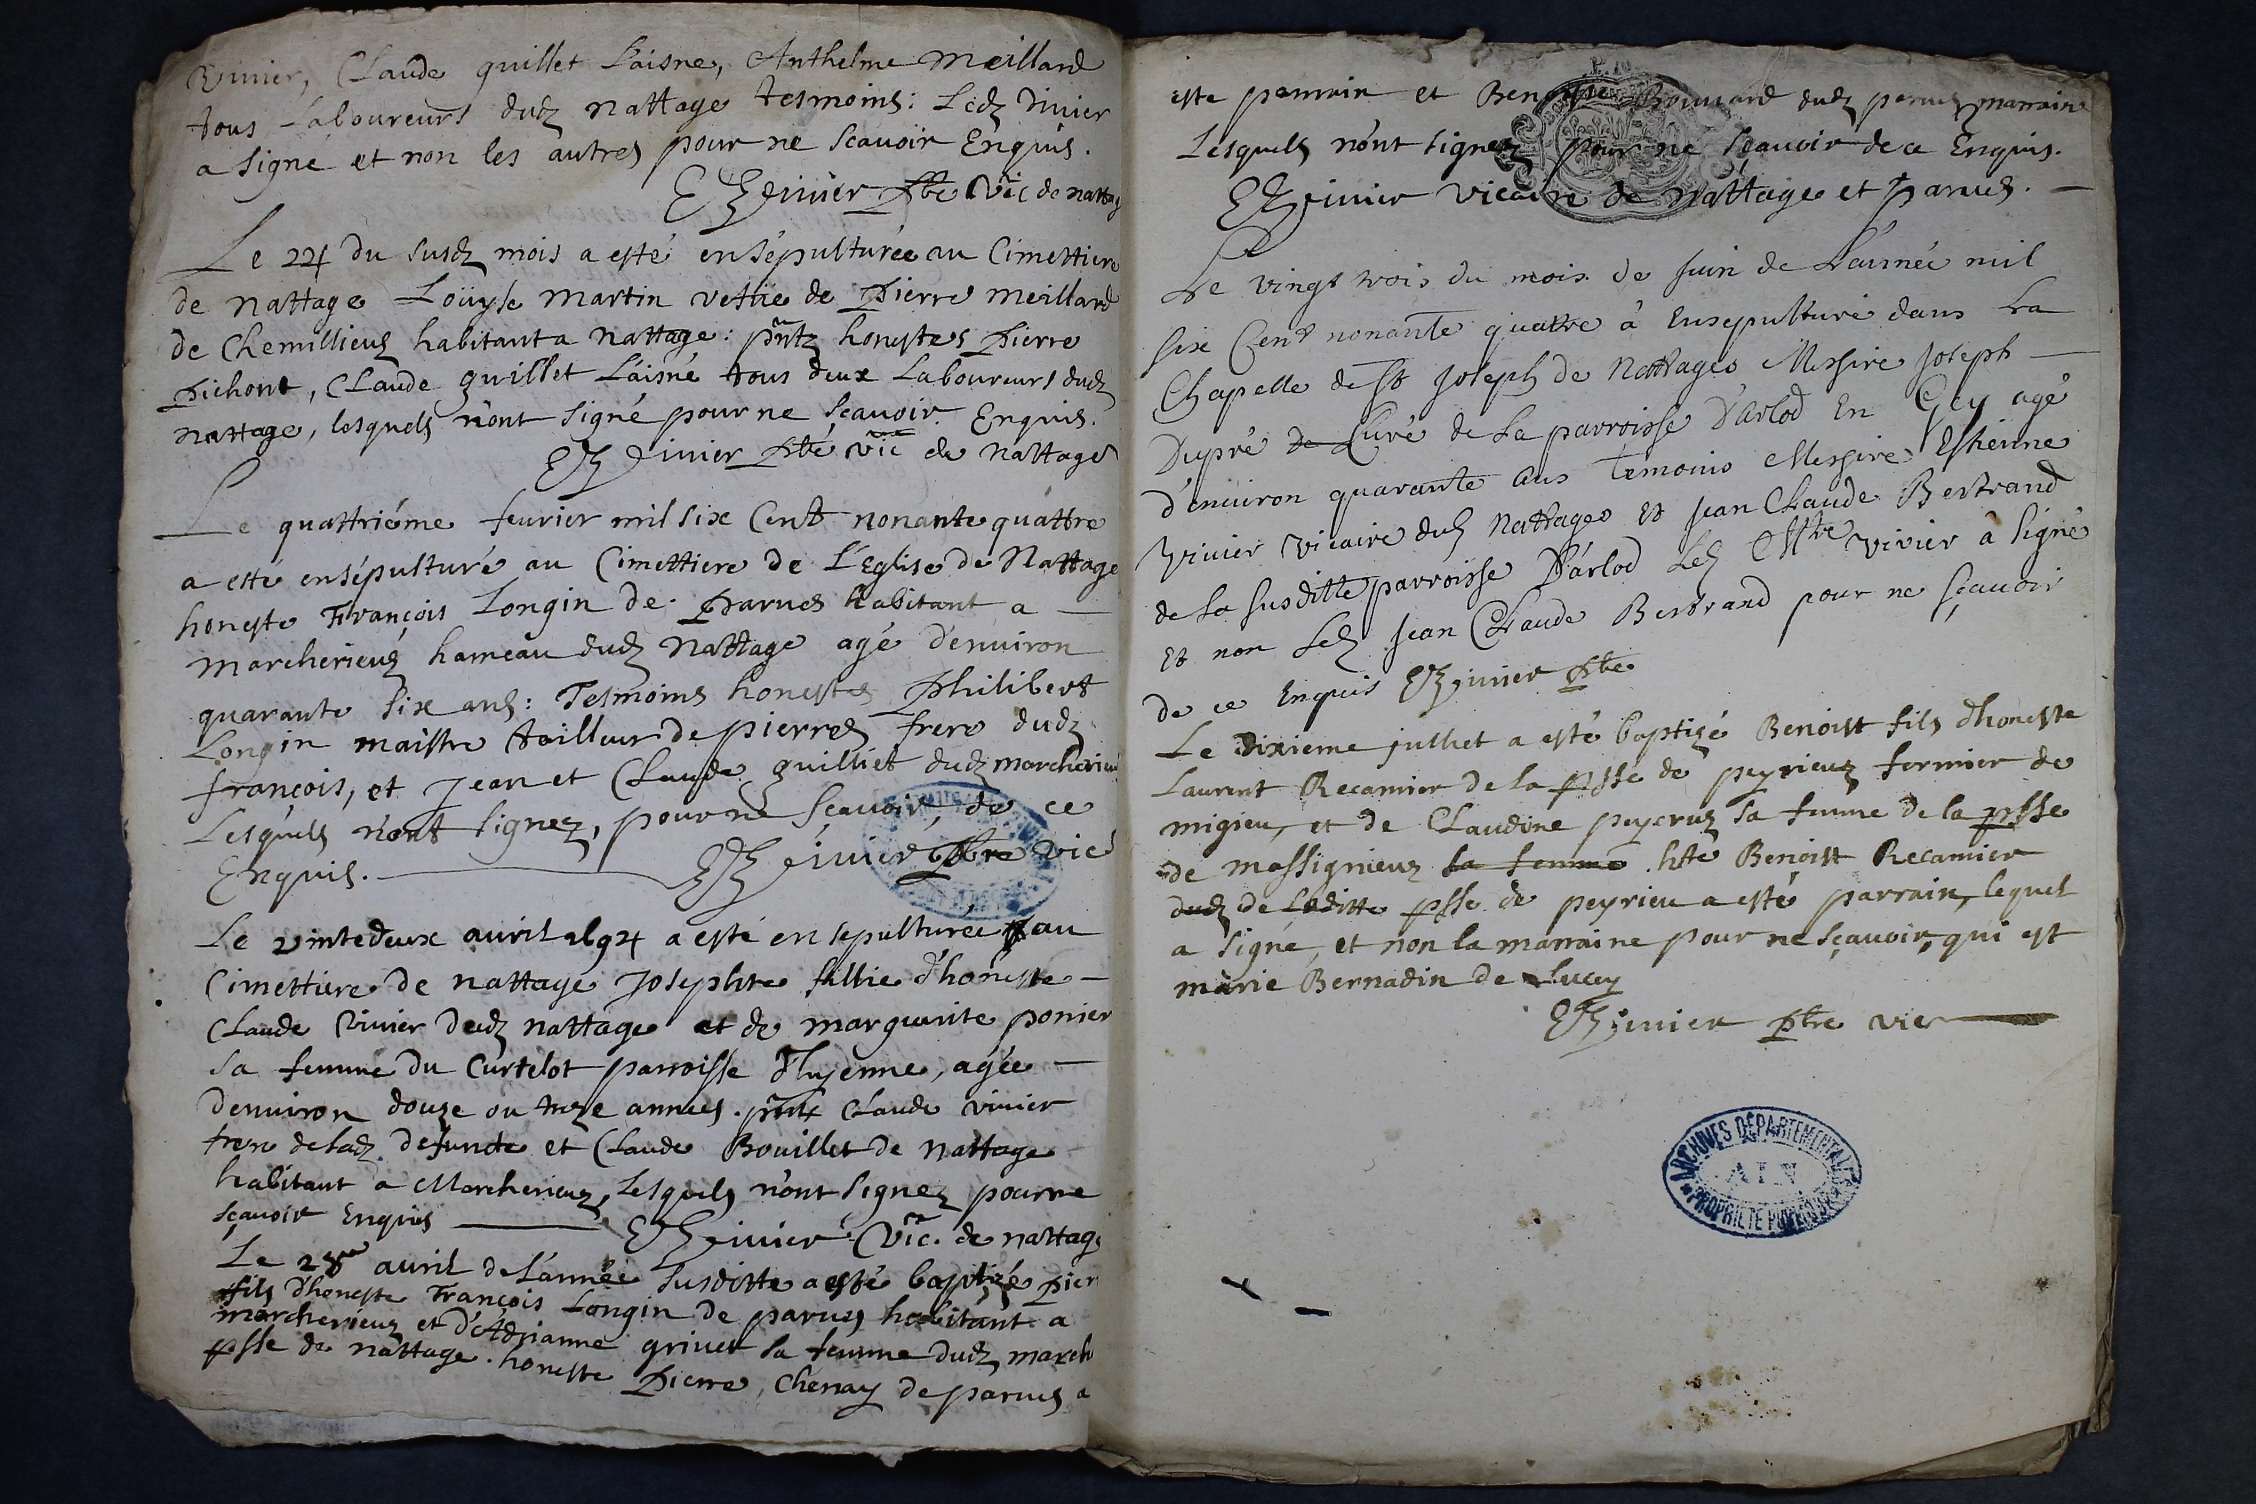 Vivier, Claude quillet L'aisne, Anthelme Meillard
tous Laboureurs dudz Nattage tesmoins: Ledz Vivier
a signé et non les autres pour ne scavoir Enquis.
E Vivier Pbte Vic de nattag
Le 24 du susdz mois a esté ensépulturée au Cimettiere
de Nattage Loüyse Martin vefue de Pierre meillard
de Chemillieuz habitant a Nattage: pntz honestes Pierre
Pichont, Claude guillet L'aisné tous deux Laboureurs dudz
Nattage, lesquels n'ont signé pour ne sçavoir Enquis.
E Vivier Pbte vic de Nattage
Le quattriéme feurier mil six Cent nonante quattre
a esté ensépulturé au Cimettiere de L'Eglise de Nattage
honeste François Longin de Parues habitant a
marcherieuz hameau dudz Nattage agé d'enuiron
quarante six ans: Tesmoins honestes Philibert
Longin maistre tailleur de pierres frere dudz
françois, et Jean et Claude guilliet dudz marcherieu
Lesquels n'ont signez, pour ne scavoir, de ce
Enquis. E Vivier Pbtre vic
Le vintedeux auril 1694 a esté ensepulturée au
Cimettiere de nattage Josephte fillie d'honeste
Claude Vivier dudz nattage et de marguerite ponier
sa femme du Curtelot parroisse d'huyenne, agée
denuiron douze ou treze annees. pntz Claude vivier
frere deladz. defuncte et Claude Bouillet de Nattage
habitant a Marcherieuz, lesquels n'ont signez pour ne
sçavoir Enquis E Vivier Vic. de nattage
Le 28me auril de L'année susditte a esté baptizé Pier
fils d'honeste François Longin de parues habitant a
marcherieuz et d'Adrianne griuet sa femme dudz march
psse de nattage. honeste Pierre Chenay de parues a
este parrain et Benoiste Bouuard dudz parues marraine
Lesquels n'ont signez pour ne sçavoir de ce Enquis.
E Vivier vicaire de Nattage et parues.
Le vingt trois du mois de Juin de L'année mil
six Cent nonante quattre à Ensepulturé dans La
Chapelle de St Joseph de Nattages Messire Joseph
Dupré de Curé de La parroisse D'Arlod En Gey agé
d'enuiron quarante ans temoins Messire Esthienne
Vivier vicaire dudz Nattages Et Jean Claude Bertrand
de La susditte parroisse D'arlod Ledz Mtre vivier à signé
Et non Ledz Jean Claude Bertrand pour ne sçavoir
de ce Enquis E Vivier Pbte
Le dixieme julliet a esté baptizé Benoist fils d'honeste
Laurent Recamier de la psse de peyrieuz fermier de
migieu, et de Claudine peycruz sa femme de la prsse
de massignieuz la femme. hte Benoist Recamier
dudz de Laditte psse de peyrieu a esté parrain, lequel
a signé, et non la marraine pour ne sçavoir, qui est
marie Bernadin de Lucey
E Vivier Pbtre vic
ARCHIVES DÉPARTEMENTALES
AIN
PROPRIÉTÉ PUBLIQUE